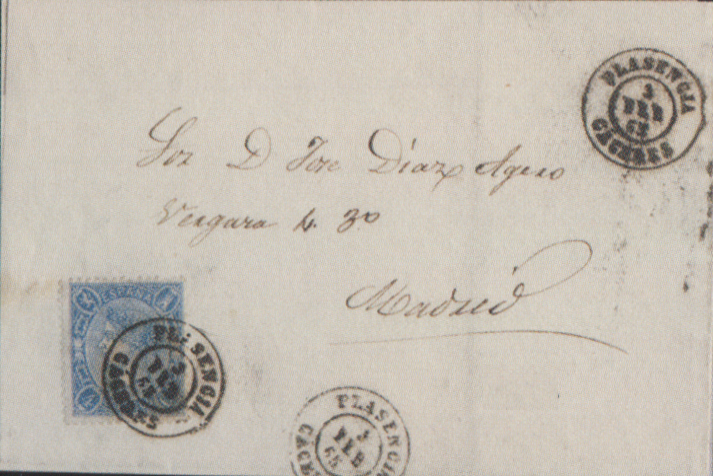 PLASENCIA
3
FEB
65
CACERES
Sor D Jose Diaz Agero
Vergara 4. 3º
Madrid
4 ESPAÑA 4
PLASENCIA
3
FEB
65
CACERES
PLASENCIA
3
FEB
65
CACER